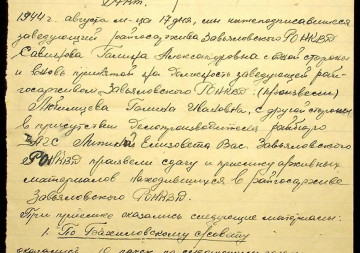 Акт.
1944 г. августа м-ца 17 дня, мы нижеподписавшиеся
заведующий райгосархива Завьяловского РОНКВД
Галина Александровна с одной стороны
и вновь принятой на должность заведующей рай-
госархивом Завьяловского РОНКВД (
Галина Ивановна, с другой стороны
в присутствии делопроизводителя райбюро
ЗАГС Елизавета Вас. Завьяловского
РОНКВД произвели сдачу и приемку архивных
материалов находившихся в райгосархиве
Завьяловского РОНКВД.
При приемке оказались следующие материалы:
1. По сельсовету
10